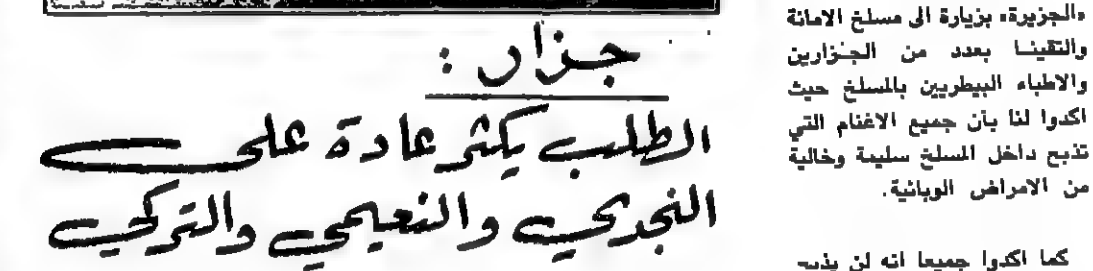 «الجزيرة» بزيارة الى مسلخ الامانة
والتقينا بعدد من الجزارين
والاطباء البيطريين بالمسلخ حيث
اكدوا لنا بأن جميع الاغنام التي
تذبح داخل المسلخ سليمة وخالية
من الامراض الوبائية.
كما اكدوا جميعا انه لن يذبح
جزار :
الطلب يكثر عادة على
النجدي والنعيمي والتركي